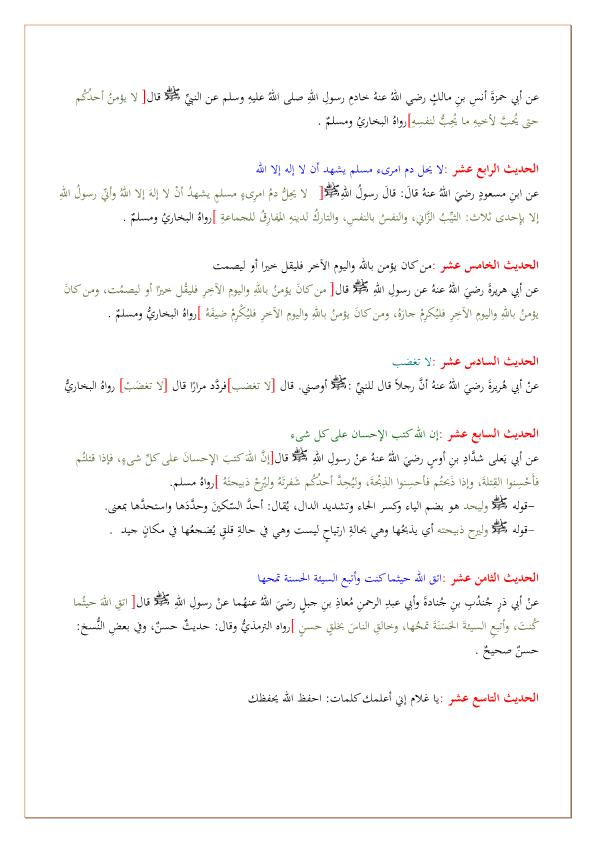 عن أبي حمزةَ أنسِ بنِ مالكٍ رضي اللهُ عنهُ خادمِ رسولِ اللهِ صلى اللهُ عليهِ وسلم عن النبيِّ ﷺ قال[ لا يؤمنُ أحدُكُم
حتى يُحبَّ لأخيهِ ما يُحِبُّ لنفسِهِ]رواهُ البخاريُ ومسلمٌ .
الحديث الرابع عشر :لا يحل دم امرىء مسلم يشهد أن لا إله إلا الله
عن ابنِ مسعودٍ رضيَ اللهُ عنهُ قالَ: قالَ رسولُ اللهِﷺ[ لا يحلُّ دمُ امرِىءٍ مسلمٍ يشهدُ أنْ لا إلهَ إلا اللهُ وأنِّي رسولُ اللهِ
إلا بإحدى ثلاث: الثيِّبُ الزَّاني، والنفسُ بالنفسِ، والتاركُ لدينهِ المفارِقُ للجماعةِ ]رواهُ البخاريُ ومسلمٌ .
الحديث الخامس عشر :من كان يؤمن بالله واليوم الآخر فليقل خيرا أو ليصمت
عن أبي هريرةَ رضيَ اللهُ عنهُ عن رسولِ اللهِ ﷺ قال[ من كانَ يؤمنُ باللهِ واليومِ الآخِرِ فليقُل خيرًا أو ليصمُت، ومن كانَ
يؤمنُ باللهِ واليومِ الآخِرِ فليُكرِمْ جارَهُ، ومن كانَ يؤمنُ باللهِ واليومِ الآخرِ فليُكْرِمْ ضيفَهُ ]رواهُ البخاريُّ ومسلمٌ .
الحديث السادس عشر :لا تغضب
عنْ أبي هُريرةَ رضيَ اللهُ عنهُ أنَّ رجلاً قال للنبيِّ :ﷺ أوصني. قال [لا تغضب]فردَّد مرارًا قال [لا تغضَبْ] رواهُ البخاريُّ
الحديث السابع عشر :إن الله كتب الإحسان على كل شىء
عن أبي يَعلى شدَّادِ بنِ أوسٍ رضيَ اللهُ عنهُ عنْ رسولِ اللهِ ﷺ قال[إنَّ اللهَ كتبَ الإحسانَ على كلِّ شىءٍ، فإذا قتلتُم
فأَحْسِنوا القِتلةَ، وإذا ذَبحتُم فأحسِنوا الذِبْحةَ، وليُحِدَّ أحدُكُم شَفرتَهُ وليُرِحْ ذبيحتَهُ ]رواهُ مسلم.
-قوله ﷺ وليحد هو بضم الياء وكسر الحاء وتشديد الدال، يُقال: أحدَّ السّكينَ وحدَّدَها واستحدَّها بمعنى.
-قوله ﷺ وليرح ذبيحته أي يذبحُها وهي بحالةِ ارتياحٍ ليست وهي في حالةِ قلقٍ يُضجعُها في مكانٍ جيد .
الحديث الثامن عشر :اتق الله حيثما كنت وأتبع السيئة الحسنة تمحها
عنْ أبي ذرٍ جُندُبِ بنِ جُنادةَ وأبي عبدِ الرحمنِ مُعاذِ بنِ جبلٍ رضيَ اللهُ عنهُما عنْ رسولِ اللهِ ﷺ قال[ اتقِ اللهَ حيثُما
كُنتَ، وأتبعِ السيئةَ الحَسَنةَ تمحُها، وخالقِ الناسَ بخلقٍ حسنٍ ]رواه الترمذيُّ وقال: حديثٌ حسنٌ، وفي بعضِ النُّسخ:
حسنٌ صحيحٌ .
الحديث التاسع عشر :يا غلام إني أعلمك كلمات: احفظ الله يحفظك